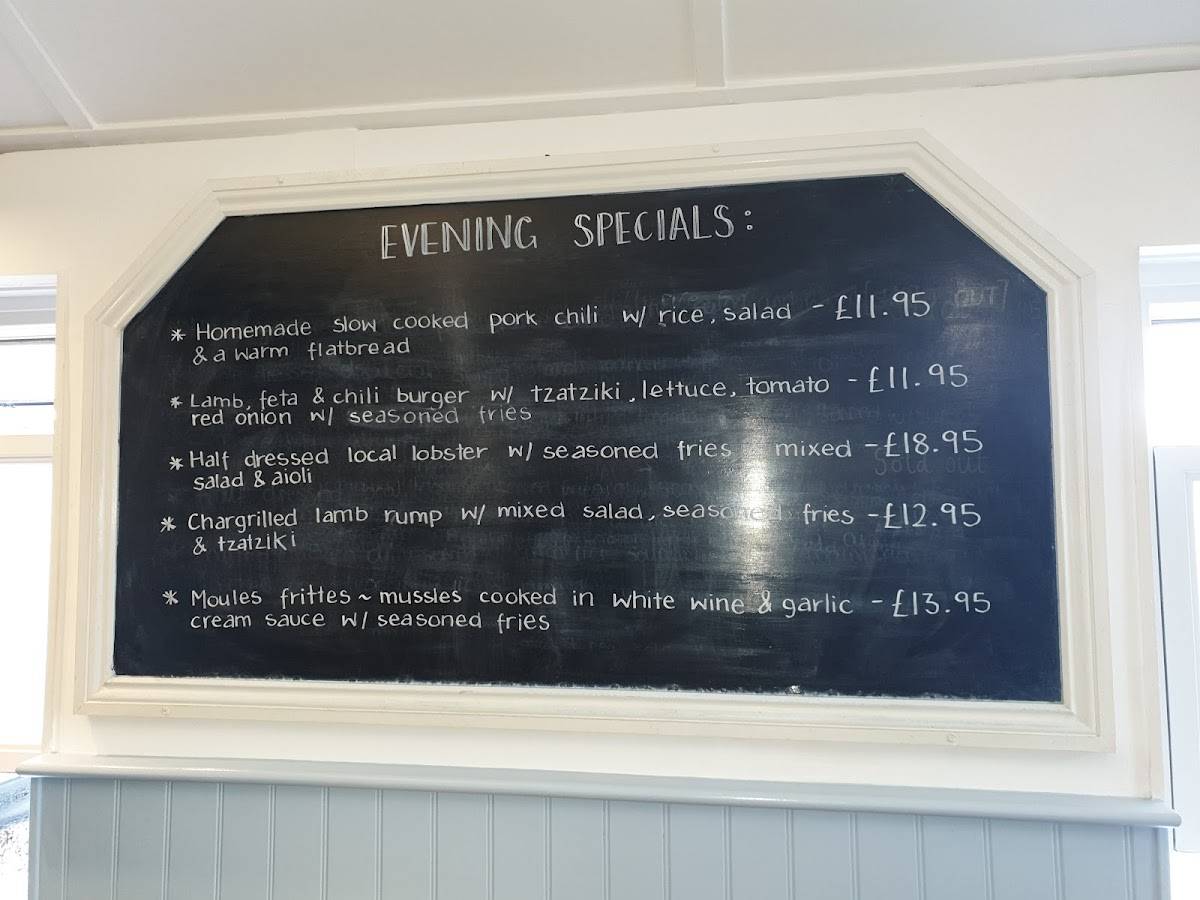 EVENING SPECIALS:
* Homemade slow cooked pork chili w/ rice, salad - £11.95
& a warm flatbread
* Lamb, feta & chili burger w/ tzatziki, lettuce, tomato - £11.95
red onion w/ seasoned fries
* Half dressed local lobster w/ seasoned fries mixed - £18.95
salad & aioli
* Chargrilled lamb rump w/ mixed salad, seasoned fries - £12.95
& tzatziki
* Moules frittes ~ mussles cooked in white wine & garlic - £13.95
cream sauce w/ seasoned fries